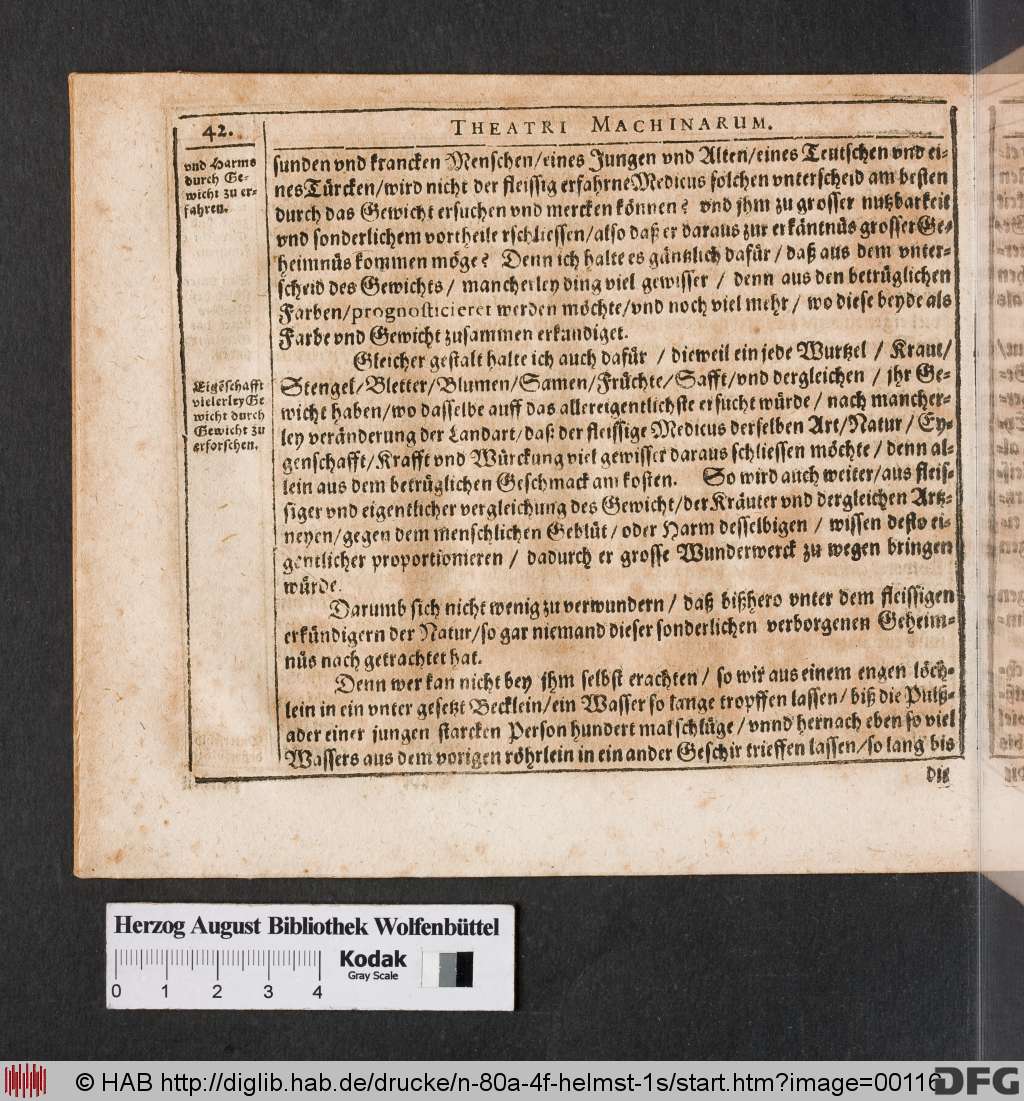 42.
THEATRI MACHINARUM.
vnd Harms
durch Ge-
wicht zu er-
fahren.
sunden vnd krancken Menschen/eines Jungen vnd Alten/eines Teutschen vnd ei-
nes Türcken/wird nicht der fleissig erfahrne Medicus solchen vnterscheid am besten
durch das Gewicht ersuchen vnd mercken können? vnd jhm zu grosser nutzbarkeit
vnd sonderlichem vortheile rschliessen/also daß er daraus zur erkäntnüs grosser Ge-
heimnüs kommen möge? Denn ich halte es gäntzlich dafür/daß aus dem vnter-
scheid des Gewichts/mancherley ding viel gewisser/denn aus den betrüglichen
Farben/prognosticieret werden möchte/vnd noch viel mehr/wo diese beyde als
Farbe vnd Gewicht zusammen erkundiget.
Gleicher gestalt halte ich auch dafür/dieweil ein jede Wurtzel/Kraut/
Eigēschafft
vielerley Ge
wicht durch
Gewicht zu
erforschen.
Stengel/Bletter/Blumen/Samen/Früchte/Safft/vnd dergleichen/jhr Ge-
wicht haben/wo dasselbe auff das allereigentlichste ersucht würde/nach mancher-
ley veränderung der Landart/daß der fleissige Medicus derselben Art/Natur/Ey-
genschafft/Krafft vnd Würckung viel gewisser daraus schliessen möchte/denn al-
lein aus dem betrüglichen Geschmack am kosten. So wird auch weiter/aus fleis-
siger vnd eigentlicher vergleichung des Gewicht/der Kräuter vnd dergleichen Artz-
neyen/gegen dem menschlichen Geblüt/oder Harm desselbigen/wissen desto ei-
gentlicher proportionieren/dadurch er grosse Wunderwerck zu wegen bringen
würde.
Darumb sich nicht wenig zu verwundern/daß bißhero vnter dem fleissigen
erkündigern der Natur/so gar niemand dieser sonderlichen verborgenen Geheim-
nüs nach getrachtet hat.
Denn wer kan nicht bey jhm selbst erachten/so wir aus einem engen löch-
lein in ein vnter gesetzt Becklein/ein Wasser so lange tropffen lassen/biß die Pulß-
ader einer jungen starcken Person hundert mal schlüge/vnnd hernach eben so viel
Wassers aus dem vorigen röhrlein in ein ander Geschir trieffen lassen/so lang bis
die
Herzog August Bibliothek Wolfenbüttel
Kodak
Gray Scale
0 1 2 3 4
© HAB http://diglib.hab.de/drucke/n-80a-4f-helmst-1s/start.htm?image=00116
DFG